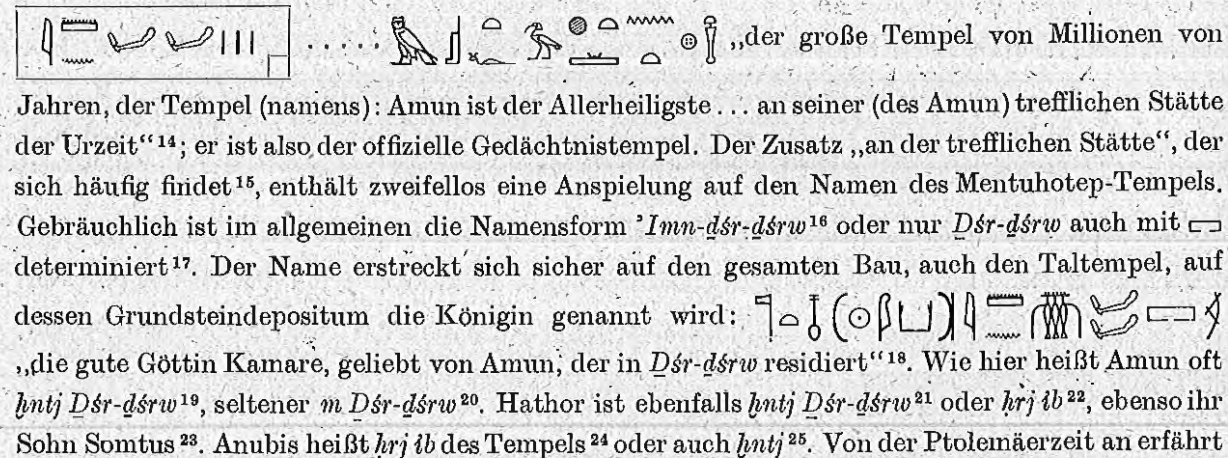 ..... „der große Tempel von Millionen von
Jahren, der Tempel (namens): Amun ist der Allerheiligste... an seiner (des Amun) trefflichen Stätte
der Urzeit“¹⁴; er ist also der offizielle Gedächtnistempel. Der Zusatz „an der trefflichen Stätte“, der
sich häufig findet¹⁵, enthält zweifellos eine Anspielung auf den Namen des Mentuhotep-Tempels.
Gebräuchlich ist im allgemeinen die Namensform ʾImn-ḏśr-ḏśrw¹⁶ oder nur Ḏśr-ḏśrw auch mit 𓉐
determiniert¹⁷. Der Name erstreckt sich sicher auf den gesamten Bau, auch den Taltempel, auf
dessen Grundsteindepositum die Königin genannt wird:
„die gute Göttin Kamarē, geliebt von Amun, der in Ḏśr-ḏśrw residiert“¹⁸. Wie hier heißt Amun oft
ḫntj Ḏśr-ḏśrw¹⁹, seltener m Ḏśr-ḏśrw²⁰. Hathor ist ebenfalls ḫntj Ḏśr-ḏśrw²¹ oder ḥrj ib²², ebenso ihr
Sohn Somtus²³. Anubis heißt ḥrj ib des Tempels²⁴ oder auch ḫntj²⁵. Von der Ptolemäerzeit an erfährt